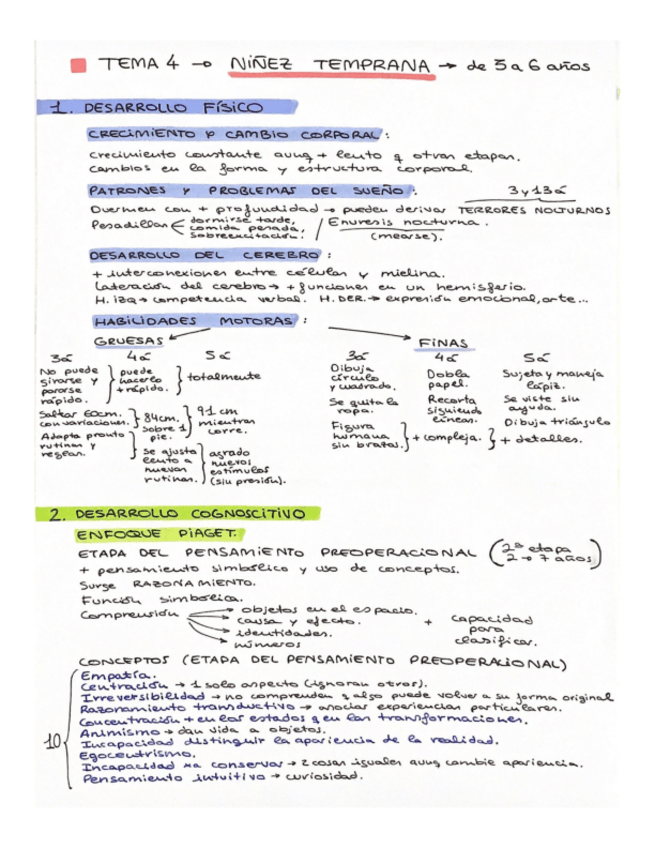 TEMA 4 → NIÑEZ TEMPRANA → de 5 a 6 años
1. DESARROLLO FÍSICO
CRECIMIENTO Y CAMBIO CORPORAL:
Crecimiento constante aunq + lento q otras etapas.
Cambios en la forma y estructura corporal.
PATRONES Y PROBLEMAS DEL SUEÑO:
3 y 13a
Duermen con + profundidad → pueden derivar TERRORES NOCTURNOS
Pesadillas dormirse tarde, comida pesada, sobreexcitación. / Enuresis nocturna. (mearse).
DESARROLLO DEL CEREBRO:
+ interconexiones entre células y mielina.
Lateración del cerebro → + funciones en un hemisferio.
H. IZQ → competencia verbal. H. DER. → expresión emocional, arte...
HABILIDADES MOTORAS:
GRUESAS
3a 4a 5a
No puede girarse y pararse rápido. } puede hacerlo + rápido. } totalmente
Saltar 60cm. con variaciones. } 84cm. sobre 1 pie. } 91 cm mientras corre.
Adapta pronto rutinas y reglas. } se ajusta lento a nuevas rutinas. } agrado nuevos estímulos (sin presión).
FINAS
3a 4a 5a
Dibuja círculo y cuadrado. Dobla papel. Sujeta y maneja lápiz.
Se quita la ropa. Recorta siguiendo líneas. Se viste sin ayuda.
Dibuja triángulo
Figura humana sin brazos. } + compleja. } + detalles.
2. DESARROLLO COGNOSCITIVO
ENFOQUE PIAGET.
ETAPA DEL PENSAMIENTO PREOPERACIONAL (2ª etapa 2 → 7 años)
+ pensamiento simbólico y uso de conceptos.
Surge RAZONAMIENTO.
Función simbólica.
Comprensión → objetos en el espacio.
→ causa y efecto.
→ identidades.
→ números
+ capacidad para clasificar.
CONCEPTOS (ETAPA DEL PENSAMIENTO PREOPERACIONAL)
10
Empatía.
Centración → 1 solo aspecto (ignoran otros).
Irreversibilidad → no comprenden q algo puede volver a su forma original
Razonamiento transductivo → asocias experiencias particulares.
Concentración + en los estados q en las transformaciones.
Animismo → dan vida a objetos.
Incapacidad distinguir la apariencia de la realidad.
Egocentrismo.
Incapacidad xa conservar → 2 cosas iguales aunq cambie apariencia.
Pensamiento intuitivo → curiosidad.